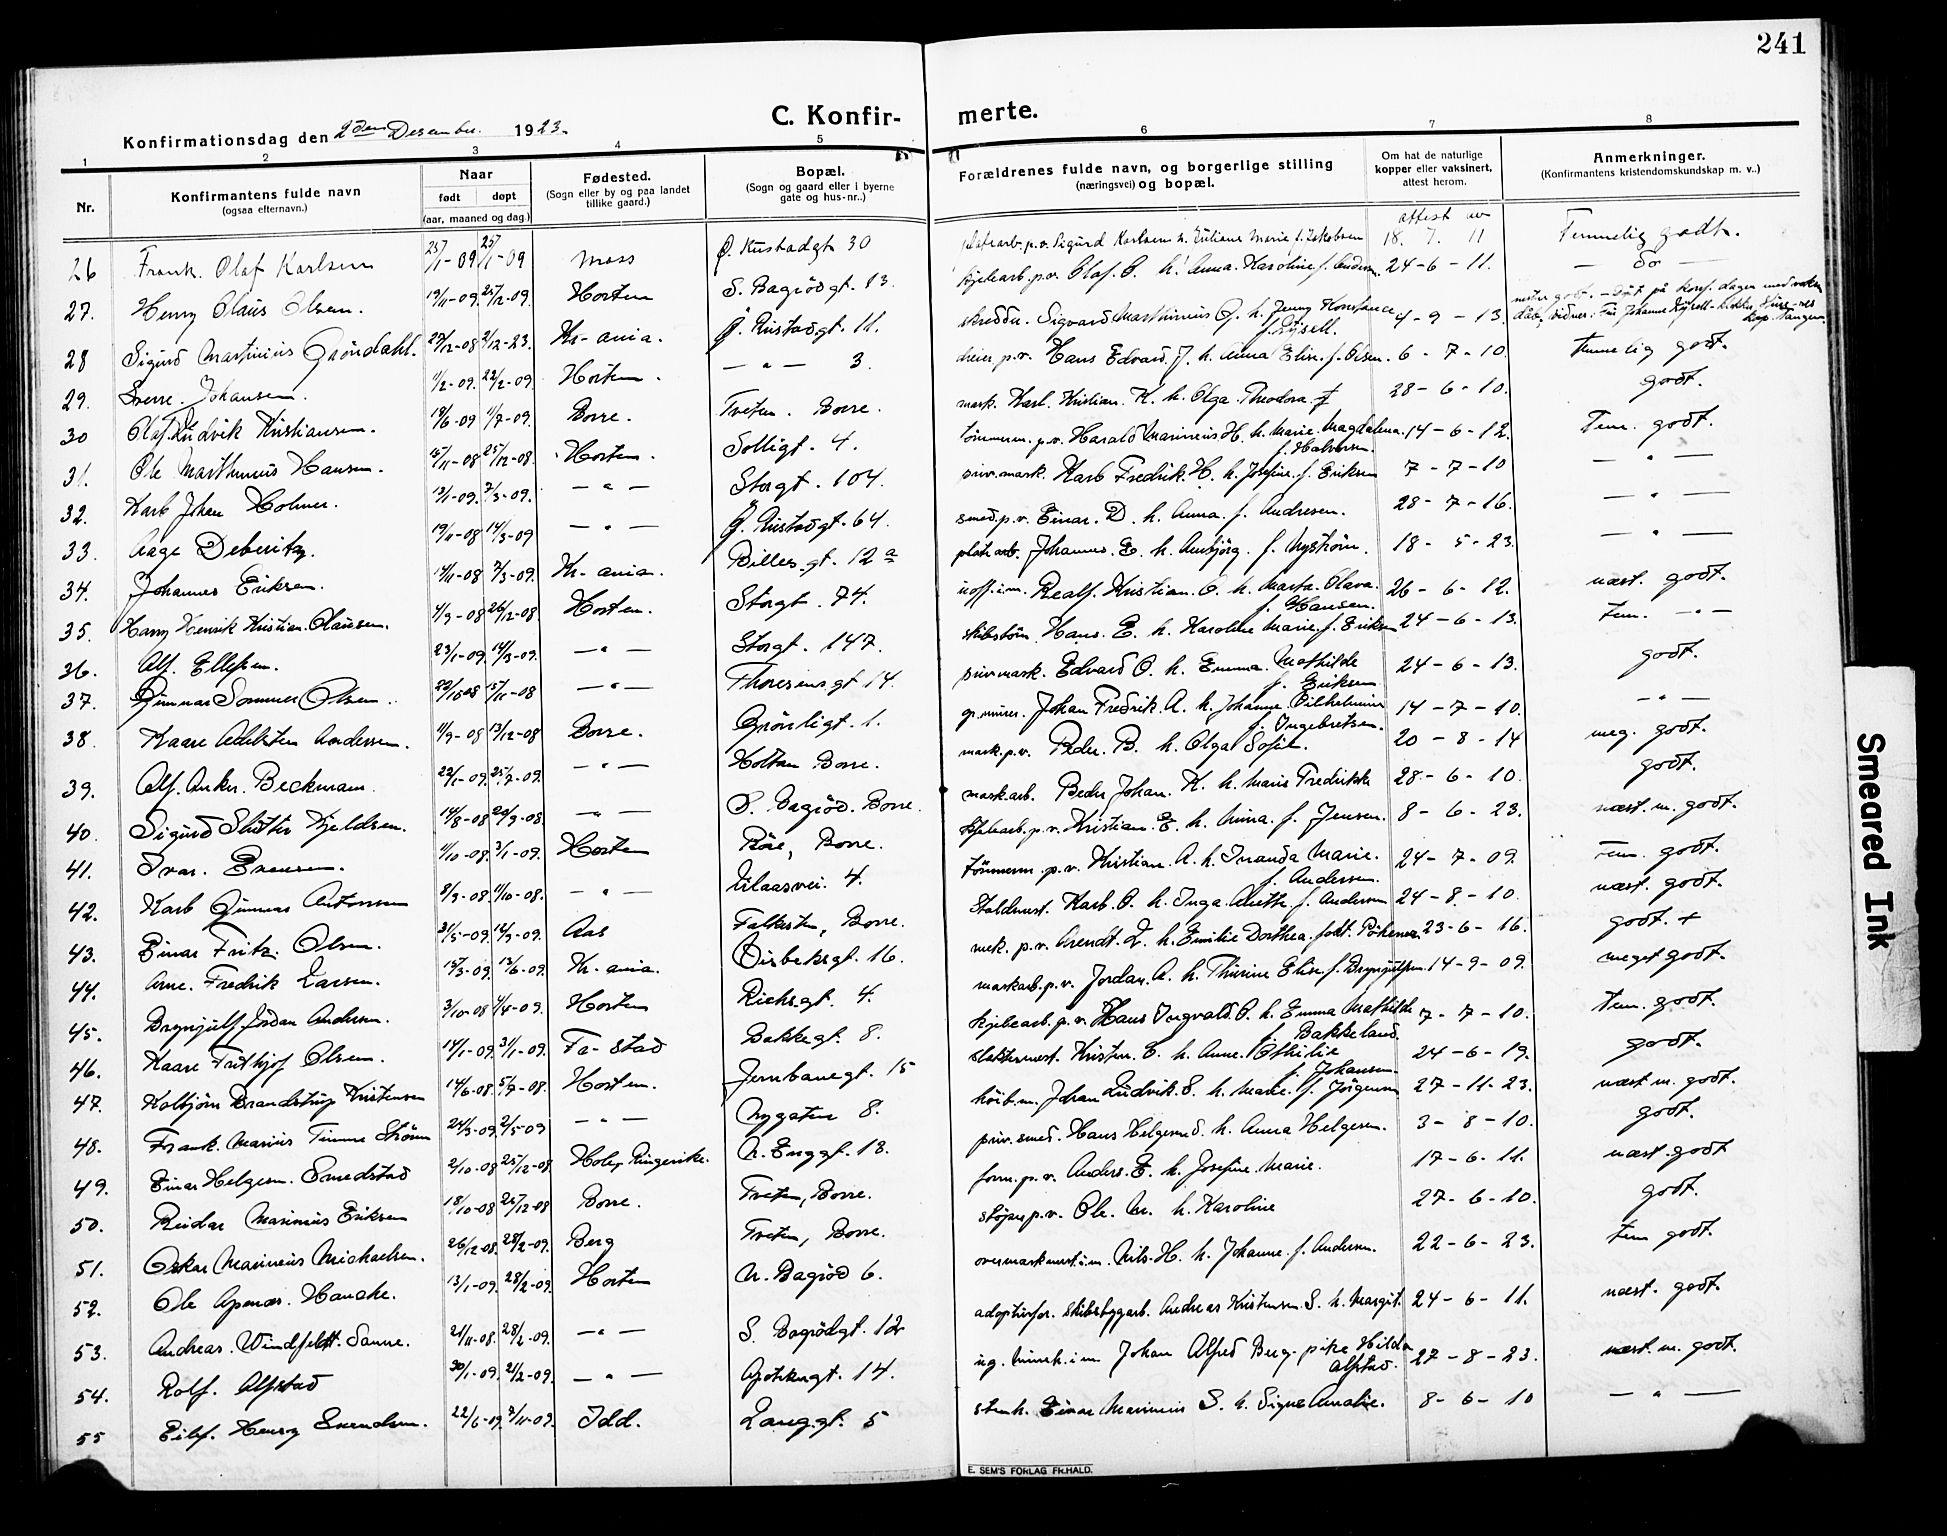 241
C. Konfir- merte.
Konfirmationsdag den 2den Desember 1923.
1 2 3 4 5 6 7 8
Nr. Konfirmantens fulde navn (ogsaa efternavn.) Naar født døpt (aar, maaned og dag.) Fødested. (Sogn eller by og paa landet tillike gaard.) Bopæl. (Sogn og gaard eller i byerne gate og hus-nr..) Forældrenes fulde navn, og borgerlige stilling (næringsvei) og bopæl. Om hat de naturlige kopper eller vaksinert, attest herom. Anmerkninger. (Konfirmantens kristendomskundskap m. v..)
26 Frank. Olaf Karlsen 25/1-09 25/1-09 Moss Ø. Rustadgt 30 p.v. Sigurd Karlsen h. Juliane Marie f. Jakobsen attest 18. 7. 11 Temmelig godt.
27. Henry Claus Olsen. 19/11-09. 25/12-09. Horten S. Bagrödgt. 13 kjelearb. p.v. Olaf. O. h. Anna. Karoline f. Andersen. 24-6-11. — do —
28 Sigurd Martinius Gröndahl. 29/12-08 2/12-23. Kr-ania. Ø. Rustadgt. 11. skredder. Sigvard Marthinius G. h. Jenny Konstance 4-9-13. godt.
29. Sverre. Johansen. 1/2-09. 22/2-09. Horten. — " — 3. dreier p.v. Hans Edvard. J. h. Anna Elise. f. Olsen. 6-7-10. temmelig godt.
30 Olaf. Ludvik Kristiansen. 18/6-09 1/9-09. Borre. Tveten. Borre. mask. Karl. Kristian. K. h. Olga. Theodora. f 28-6-10. godt.
31. Ole Marthinius Hansen. 15/11-08 25/12-08. Horten. Solligt. 4. tömmerm. p.v. Harald Marinius H. h. Marie. Magdalena. f. Halvorsen. 14-6-12. Tem. godt.
32. Karl Johan Holmer. 13/1-09. 7/3-09. — " — Storgt. 104. priv.mask. Karl Fredrik. H. h. Josefine. f. Eriksen 7-7-10 — " —
33. Aage Deberitz. 19/11-08 14/3-09 — " — Ø. Rustadgt. 64. smed. p.v. Einar. D. h. Anna. f. Andresen. 28-7-16. — " —
34. Johannes Eriksen. 14/11-08 7/3-09. Kr-ania. Billes.gt. 12 a platearb. Johannes. E. h. Ambjörg. f. Nyström. 18-5-23. — " —
35. Harry Henrik Kristian. Clausen. 4/9-08 26/12-08 Horten. Storgt. 74. uoff. i.m. Realf. Kristian. C. h. Marta. Olava. f. Hansen. 26-6-12. næst. godt.
36. Alf. Ellefsen. 23/1-09. 14/3-09. — " — Storgt. 147. skibstöm. Hans. E. h. Karoline Marie. f. Eriksen 24-6-13. tem. — " —
37. Gunnar Sommer Olsen. 23/10-08 15/11-08 — " — Thoresensgt 14. privmask. Edvard O. h. Emma. Mathilde f. Eriksen 24-6-13. godt.
38. Kaare Adelsten Andersen. 11/9-08 13/12-08 Borre. Grönligt. 1. gr.murer. Johan Fredrik. A. h. Johanne. Vilhelmine f. Ingebretsen. 14-7-10. — " —
39. Alf. Anker. Beckman. 22/1-09. 25/7-09. — " — Holtan Borre. mask. p.v. Peder. B. h. Olga Sofie. 20-8-14 meg. godt.
40. Sigurd Slötter Kjeldsen. 14/8-08 20/9-08. — " — S. Bagröd. Borre maskarb. Peder Johan. K. h. Marie Fredrikke 28-6-10. godt.
41. Ivar. Evensen. 1/10-08. 3/1-09. Horten Röre, Borre. kjelearb. p.v. Kristian. E. h. Anna. f. Jensen. 8-6-23. næst. m. godt.
42. Karl Gunnar Antonsen 8/9-08. 11/10-08. — " — Ulaasvei. 4. tömmerm. p.v. Kristian. A. h. Iranda Marie. f. Andersen. 24-7-09. Tem. godt.
43. Einar Fritz. Olsen. 31/5-09. 12/9-09. Aas Falkesten, Borre. Staldmest. Karl. O. h. Inga. Alethe f. Andersen 24-8-10. næst. godt.
44. Arne. Fredrik Larsen. 15/3-09. 13/6-09. Kr.ania. Disbeksgt. 16. mek. p.v. Arendt. L. h. Emilie Dorthea. 23-6-16. godt. +
45. Brynjulf Jordan Andersen. 3/10-08 4/4-09. Horten Richsgt. 4. maskarb. p.v. Jordan. A. h. Thurine Elise f. Brynjulfsen. 14-9-09. meget godt.
46. Kaare Fritthjof Olsen. 14/1-09. 31/1-09. Fr-stad Bakkegt. 8. kjelearb. p.v. Hans Ingvald. O. h. Emma Mathilde f. Bakkeland. 7-7-10. tem. godt.
47. Kolbjörn Brandstrup Kristensen 14/6-08. 5/7-08. Horten. Jernbanegt. 15 slaktermest. Kristen. C. h. Anne. Othilie f. Johansen. 24-6-19. godt.
48. Frank. Marius Timme Ström 24/3-09. 2/5-09 — " — Nygaten 8. Johan Ludvik. S. h. Marie. f. Jörgensen 27-11-23. næst m. godt.
49. Einar Helgesen. Smedstad 2/10-08 25/12-08. Hole, Ringerike. N. Enggt. 18. priv. smed. Hans Helgesen. S. h. Anna Helgesen. 3-8-10. godt.
50. Reidar Marinius Eriksen 18/10-08 26/12-08 Borre. Tveten, Borre. form. p.v. Anders. E. h. Josefine. Marie. 17-6-11. næst. godt
51. Oskar Marinius Michaelsen. 26/12-08. 28/2-09. Berg Tveten, Borre. stöper p.v. Ole. M. h. Karoline 27-6-10. godt.
52. Ole Apenæs. Hancke. 13/1-09. 28/2-09. Horten N. Bagröd 6. overmaskmest. i.m. Nils-H. h. Johanne. f. Andersen. 22-6-23. tem godt.
53. Andreas. Windfeldt. Sanne. 21/11-08. 28/2-09. — " — S. Bagrödgt. 12 adoptivfor. skibsbyggarb. Andreas Kristensen. S. h. Margit. 24-6-11. næst. godt.
54. Rolf. Alfstad 30/1-09. 21/2-09. — " — Apotekergt. 14. Johan Alfred Berg. pike Hilda Alfstad. 27-8-23. næst. m. godt.
55 Eilif. Henry Svendsen. 22/6-09. 7/11-09. Idd. Langgt. 5 Einar Marinius S. h. Signe Amalie. 8-6-10 — " —
E. SEM'S FORLAG FR.HALD.
Smeared Ink